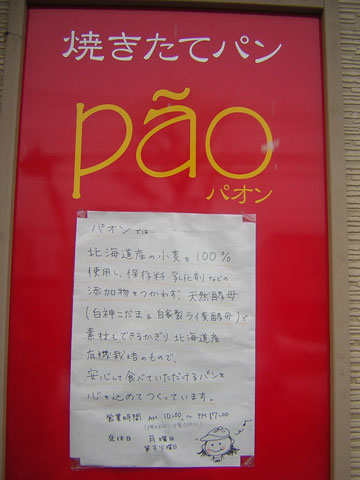 焼きたてパン
pão
パオン
パオンでは…
北海道産の小麦を100%
使用し、保存料、乳化剤などの
添加物をつかわず、天然酵母
(白神こだま&自家製ライ麦酵母)で
素材もできるかぎり北海道産・
有機栽培のもので、
安心して食べていただけるパンを
心を込めてつくっています。
営業時間 AM 10:00 〜 PM 17:00
定休日 月曜日
第3火曜日